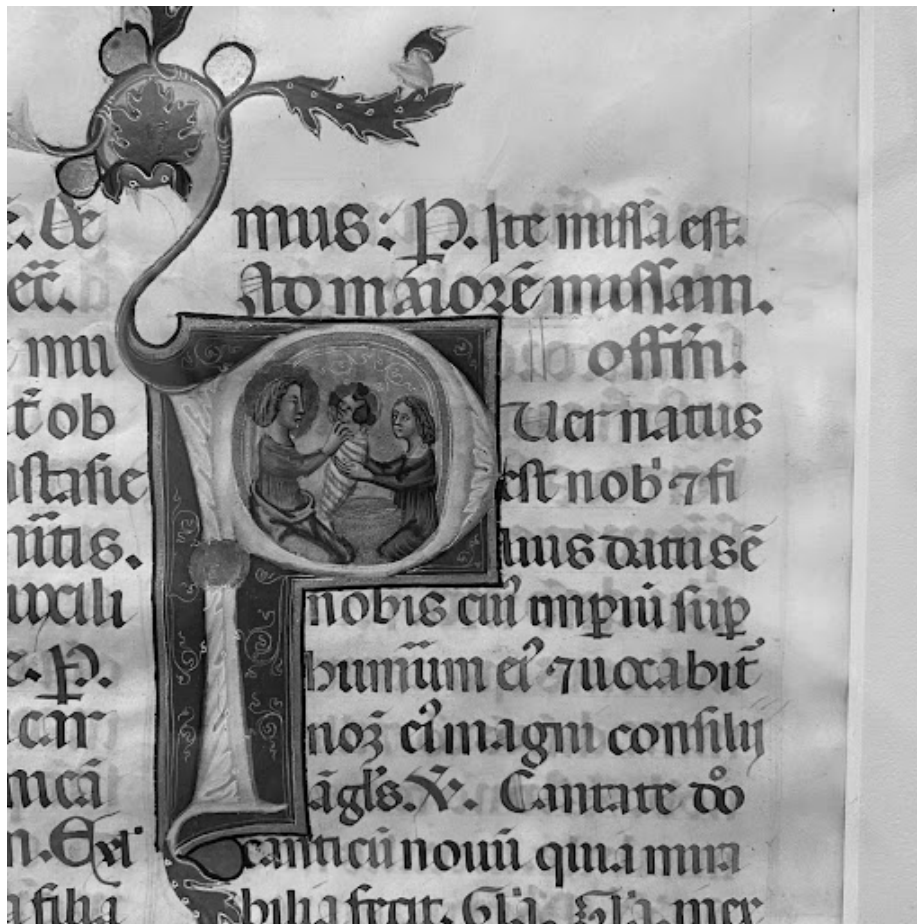 . de
ec̄.
mu
t̄ ob
astasie
nītis.
uxili
. P.
car
mcā
n. Exl'
a filia
mus: P. Ite missa est.
Ad maiorē missam.
offm̄.
P Uer natus
est nob' ⁊ fi
lius datus ē
nobis cuiꝰ imꝑiū suꝑ
humiūm eiꝰ ⁊ uocabit̄
noꝫ eiꝰ magni consilij
āgl's. V. Cantate dōo
canticū nouū quia mira
bilia fecit. Gl'a. Gl'a. mex